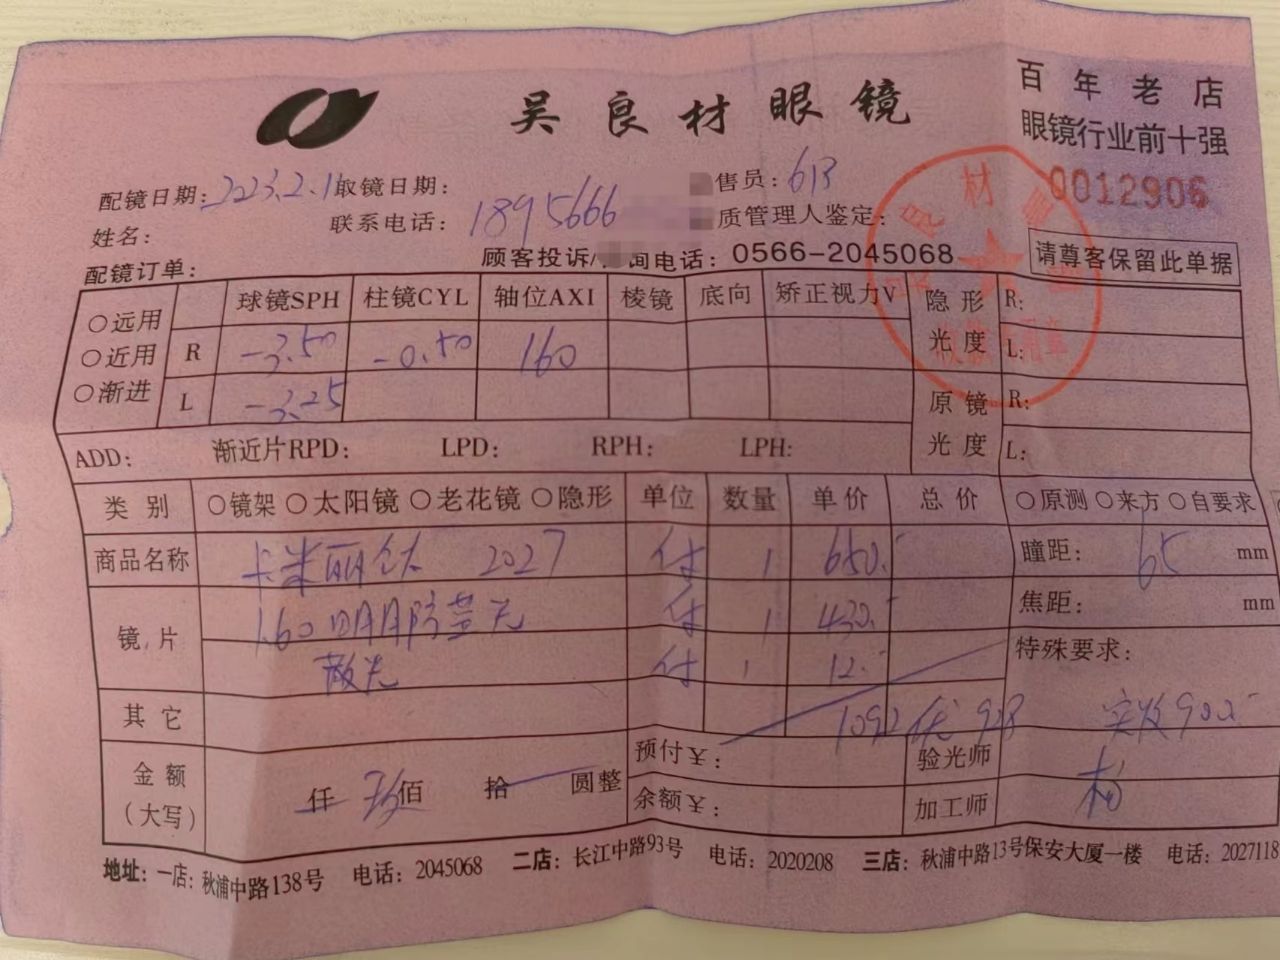 吴良材眼镜
百年老店
眼镜行业前十强
0012906
配镜日期：2023.2.1 取镜日期： 售员：613
姓名： 联系电话：1895666 质管理人鉴定：
配镜订单： 顾客投诉/ 询电话：0566-2045068 请尊客保留此单据
球镜SPH 柱镜CYL 轴位AXI 棱镜 底向 矫正视力V
○远用 ○近用 ○渐进
R -3.50 -0.50 160
L -3.25
隐形光度 R: L:
原镜光度 R: L:
ADD: 渐近片RPD: LPD: RPH: LPH:
类别 ○镜架 ○太阳镜 ○老花镜 ○隐形 单位 数量 单价 总价 ○原测 ○来方 ○自要求
商品名称 卡米丽钛 2027 付 1 650.- 瞳距： 65 mm
镜片 1.60明月防蓝光 付 1 430.- 焦距： mm
散光 付 1 12.- 特殊要求：
其它 1092优928 实收900.-
金额（大写） 仟 玖佰 拾 圆整 预付￥： 验光师
余额￥： 加工师
地址：一店：秋浦中路138号 电话：2045068 二店：长江中路93号 电话：2020208 三店：秋浦中路13号保安大厦一楼 电话：2027118